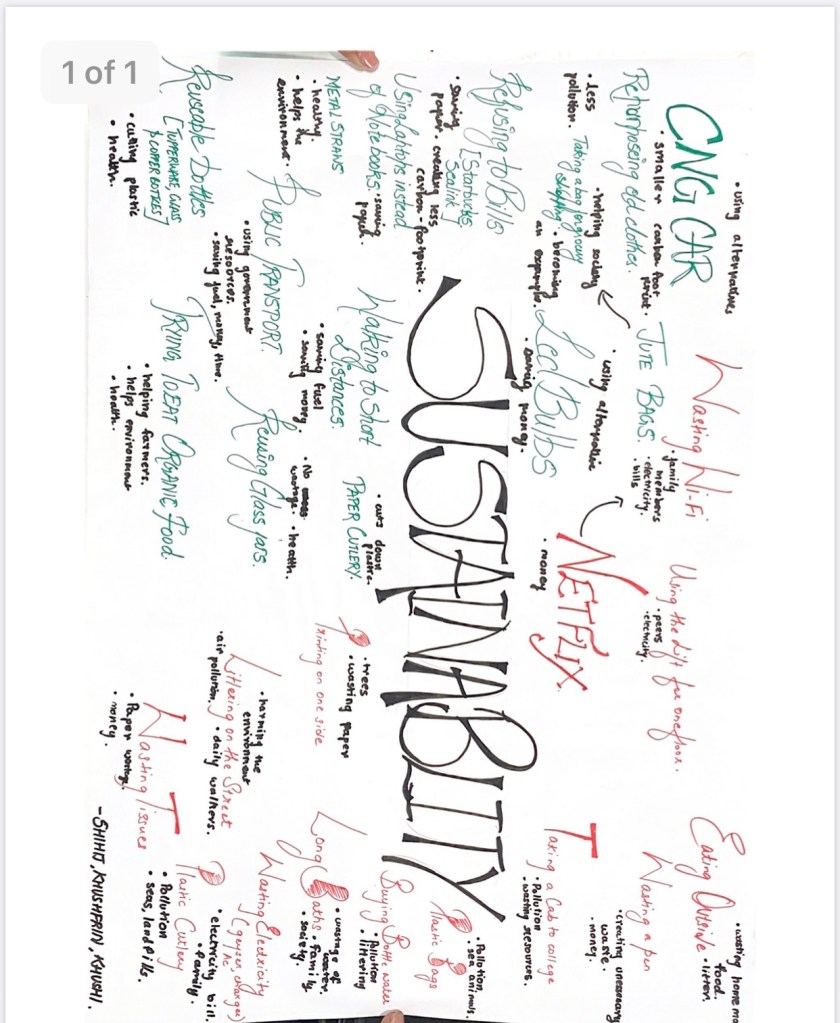 1 of 1
• using alternatives
CNG CAR
• smaller carbon foot print.
Repurposing old clothes.
• less
pollution.
• helping society
Taking a bag for grocery
shopping
• becoming
an example.
Refusing to Bills
[Starbucks
Sealink
• saving
paper
• creating less
carbon-footprint.
Using laptops instead
of Notebooks
• saving
paper.
METAL STRAWS
• healthy.
• helps the
environment.
PUBLIC TRANSPORT.
• using government
resources.
• saving fuel, money, time.
Reuseable Bottles
[TUPPERWARE, GLASS
& COPPER BOTTLES]
• cutting plastic
• health.
JUTE BAGS.
• using alternative
Led Bulbs
• saving money.
SUSTAINABLIITY
Walking to Short
Distances.
• saving fuel
• saving money.
PAPER CUTLERY.
• cuts down
plastic
Reusing Glass jars.
• No
wastage.
• health.
TRYING TO EAT ORGANIC FOOD.
• helping farmers.
• helps environment
• health.
Wasting Wi-Fi
• family
members
• electricity.
• bills
Using the Lift for one floor.
• peers
• electricity.
NETFLIX
• money
Eating Outside
• wasting home
food.
• litter.
Wasting a pen
• creating unnecessary
waste.
• money.
Taking a Cab to college
• Pollution
• wasting resources.
Plastic Bags
• Pollution.
• sea animals.
Buying Bottle water
• Pollution
• littering
Printing on one side
• trees
• wasting paper
Long Baths
• wastage of
water.
• family
• society.
Littering on the Street
• harming the
environment
• air pollution.
• daily walkers.
Wasting Electricity
(geyser, charger,
AC)
• electricity bill.
• family.
Wasting Tissues
• Paper wastage.
• money.
Plastic Cutlery
• Pollution
• seas, landfills.
- SHIHIJ, KHUSHFRIN, KHUSHI.